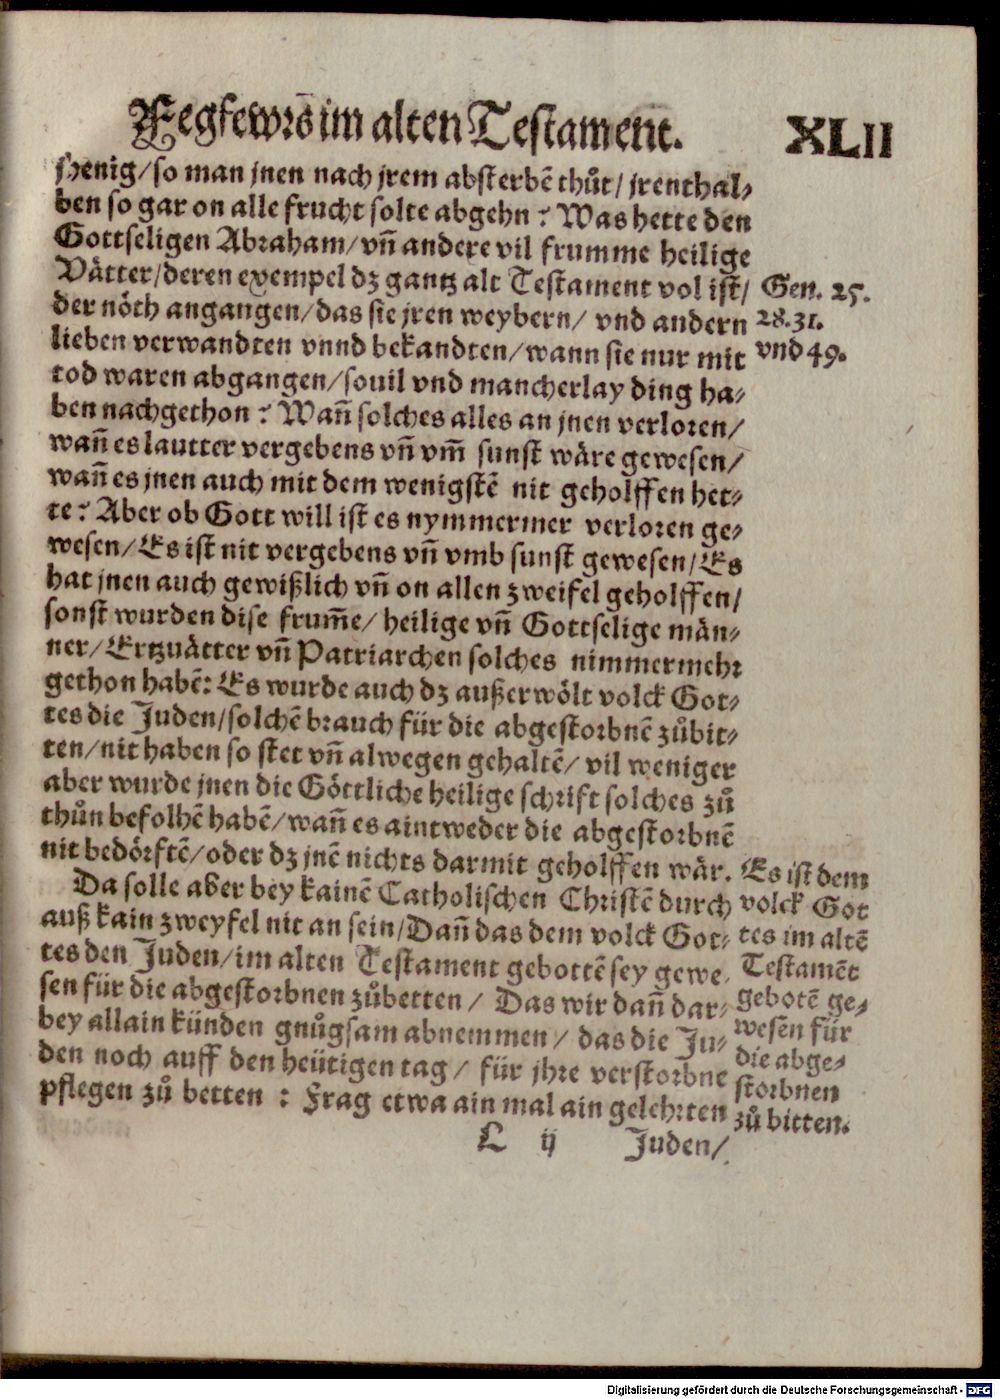 Fegfewrs im alten Testament. XLII
jhenig/so man jnen nach jrem absterbē thůt/ jrenthal-
ben so gar on alle frucht solte abgehn? Was hette den
Gottseligen Abraham/vñ andere vil frumme heilige
Vätter/deren exempel dz gantz alt Testament vol ist/
der nöth angangen/das sie jren weybern/ vnd andern
lieben verwandten vnnd bekandten/wann sie nur mit
tod waren abgangen/souil vnd mancherlay ding ha-
ben nachgethon? Wañ solches alles an jnen verloren/
wañ es lautter vergebens vñ vm̃ sunst wäre gewesen/
wañ es jnen auch mit dem wenigstē nit geholffen het-
te? Aber ob Gott will ist es nymmermer verloren ge-
wesen/Es ist nit vergebens vñ vmb sunst gewesen/Es
hat jnen auch gewißlich vñ on allen zweifel geholffen/
sonst wurden dise frum̃e/ heilige vñ Gottselige män-
ner/Ertzuätter vñ Patriarchen solches nimmermehr
gethon habē: Es wurde auch dz außerwölt volck Got-
tes die Juden/solchē brauch für die abgestorbnē zůbit-
ten/nit haben so stet vñ alwegen gehaltē/ vil weniger
aber wurde jnen die Göttliche heilige schrift solches zů
thůn befolhē habē/wañ es aintweder die abgestorbnē
nit bedörftē/oder dz jnē nichts darmit geholffen wär.
Da solle aber bey kainē Catholischen Christē durch
auß kain zweyfel nit an sein/Dañ das dem volck Got-
tes den Juden/im alten Testament gebottē sey gewe-
sen für die abgestorbnen zůbetten/ Das wir dañ dar-
bey allain künden gnůgsam abnemmen/ das die Ju-
den noch auff den heütigen tag/ für jhre verstorbne
pflegen zů betten: Frag etwa ain mal ain gelehrten
L ij Juden/
Gen. 25.
28.31.
vnd 49.
Es ist dem
volck Got
tes im altē
Testamēt
gebotē ge-
wesen für
die abge-
storbnen
zů bitten.
Digitalisierung gefördert durch die Deutsche Forschungsgemeinschaft - DFG